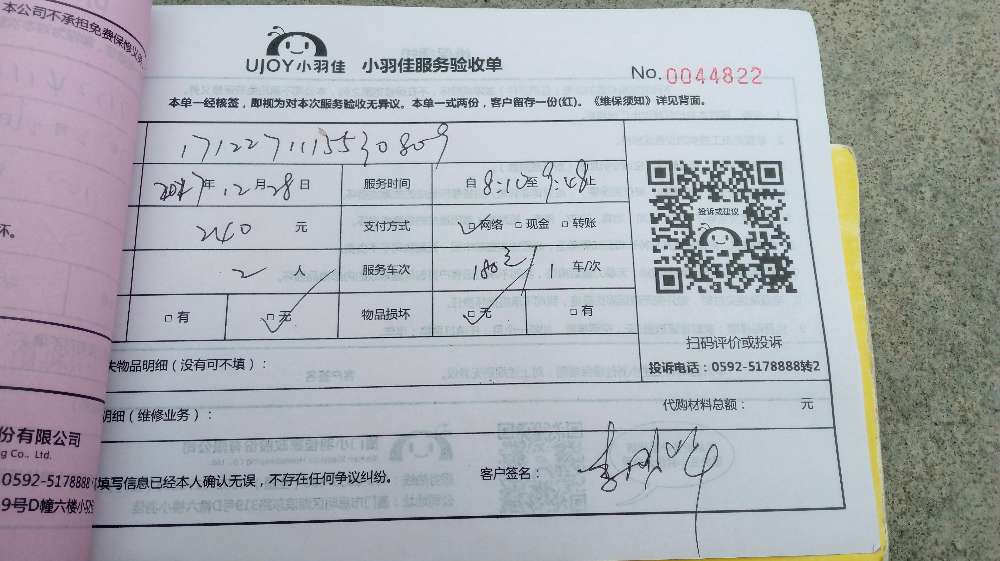 本公司不承担免费保修义务
UJOY小羽佳 小羽佳服务验收单
No. 0044822
本单一经核签，即视为对本次服务验收无异议。本单一式两份，客户留存一份(红)。《维保须知》详见背面。
171227111553 0809
2017年12月28日 服务时间 自8:10至9:48止
240 元 支付方式 □网络 □现金 □转账
坏。
2 人 服务车次 180元/1 车/次
投诉或建议
□有 □无 物品损坏 □无 □有
扫码评价或投诉
投诉电话：0592-5178888转2
失物品明细（没有可不填）：
明细（维修业务）： 代购材料总额： 元
份有限公司
ng Co., Ltd.
0592-5178888
填写信息已经本人确认无误，不存在任何争议纠纷。 客户签名：
9号D幢六楼小羽佳